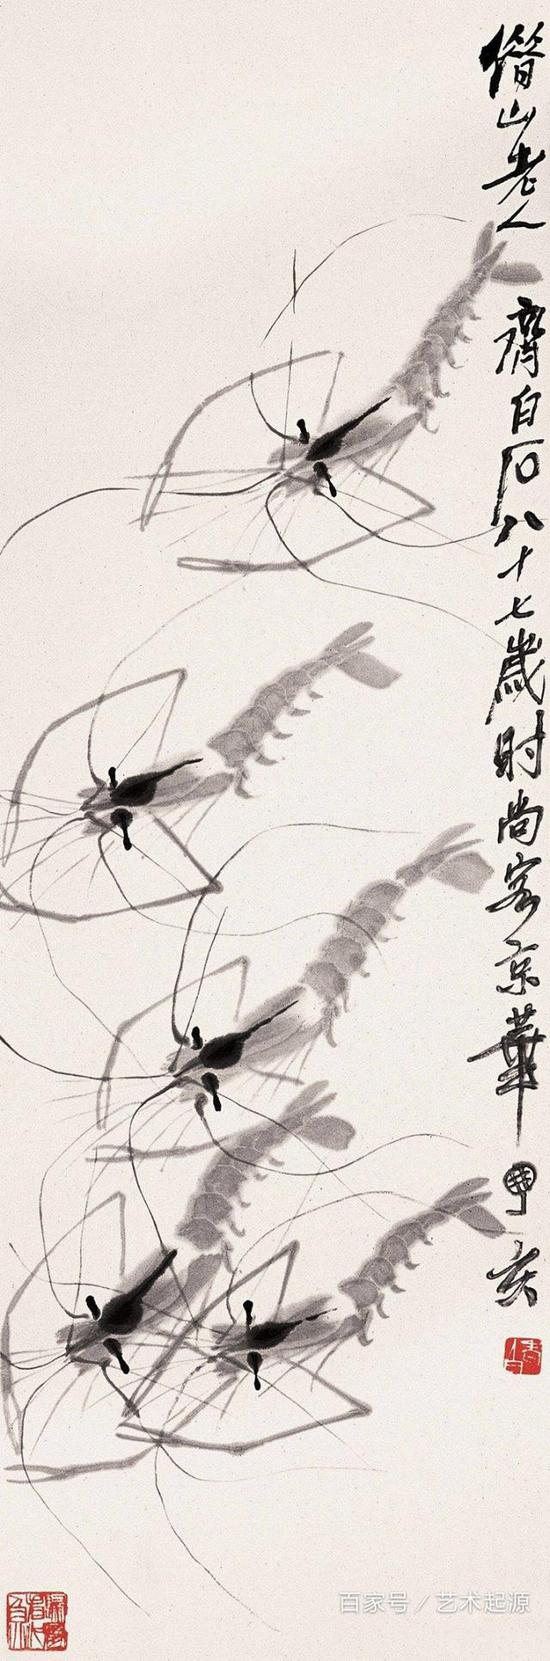 借山老人 齊白石八十七歲时尚客京華 亥
百家号／艺术起源